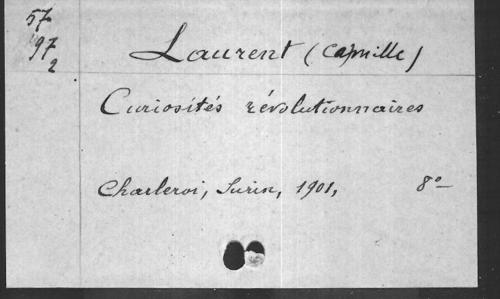 57
97
2
Laurent (Camille)
Curiosités révolutionnaires
Charleroi, Surin, 1901, 8º